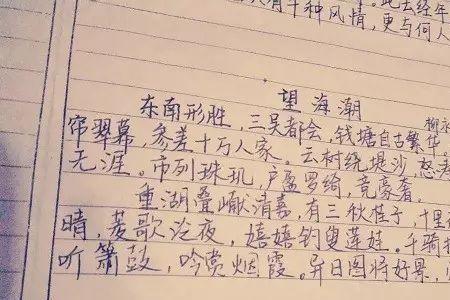 此去经年
有千种风情，更与何人
望海潮
柳永
东南形胜，三吴都会，钱塘自古繁华。
帘翠幕，参差十万人家。云树绕堤沙，怒涛
无涯。市列珠玑，户盈罗绮，竞豪奢。
重湖叠巘清嘉，有三秋桂子，十里
晴，菱歌泛夜，嬉嬉钓叟莲娃。千骑
听箫鼓，吟赏烟霞。异日图将好景，